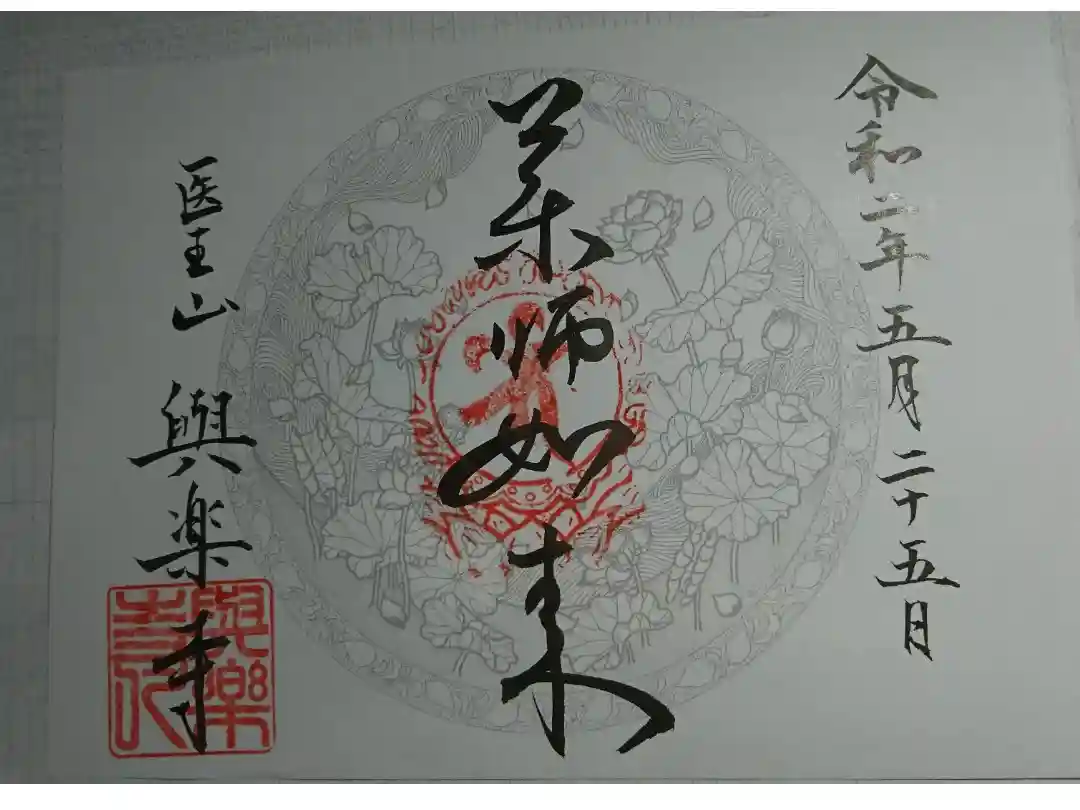 令和二年五月二十五日
薬師如来
医王山 與楽寺
與樂
寺印